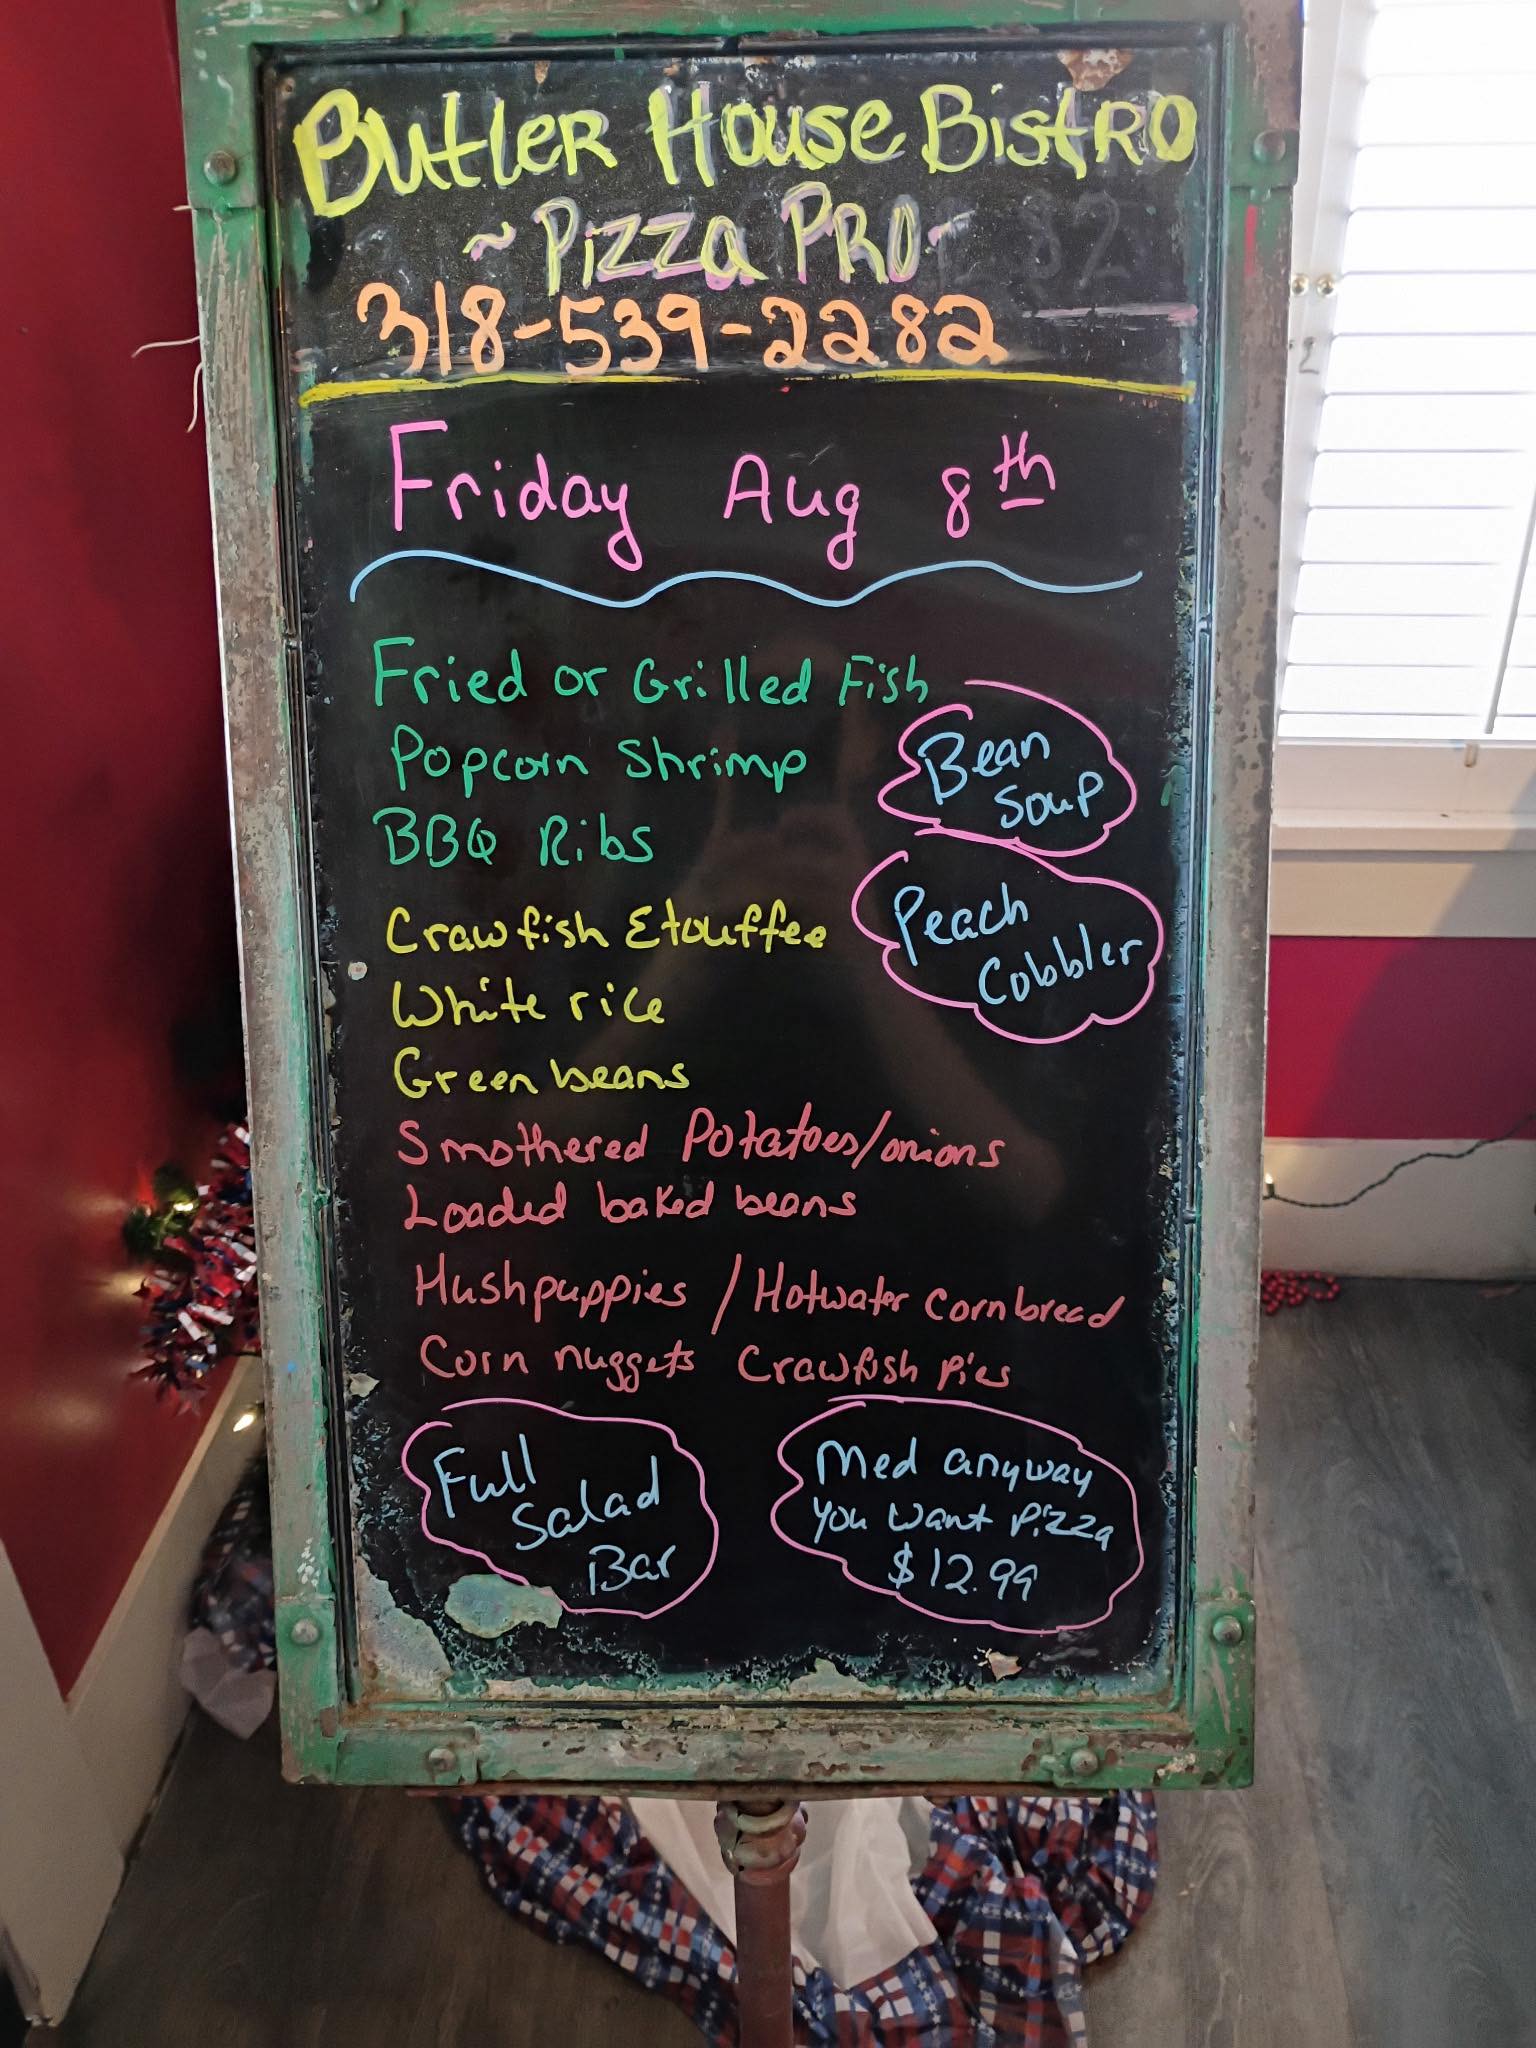 Butler House Bistro
~ Pizza Pro ~
318-539-2282
Friday Aug 8th
Fried or Grilled Fish
Popcorn Shrimp
BBQ Ribs
Bean
Soup
Crawfish Etouffee
White rice
Green beans
Peach
Cobbler
Smothered Potatoes/onions
Loaded baked beans
Hushpuppies / Hotwater Cornbread
Corn nuggets Crawfish Pies
Full
Salad
Bar
Med anyway
you want Pizza
$12.99